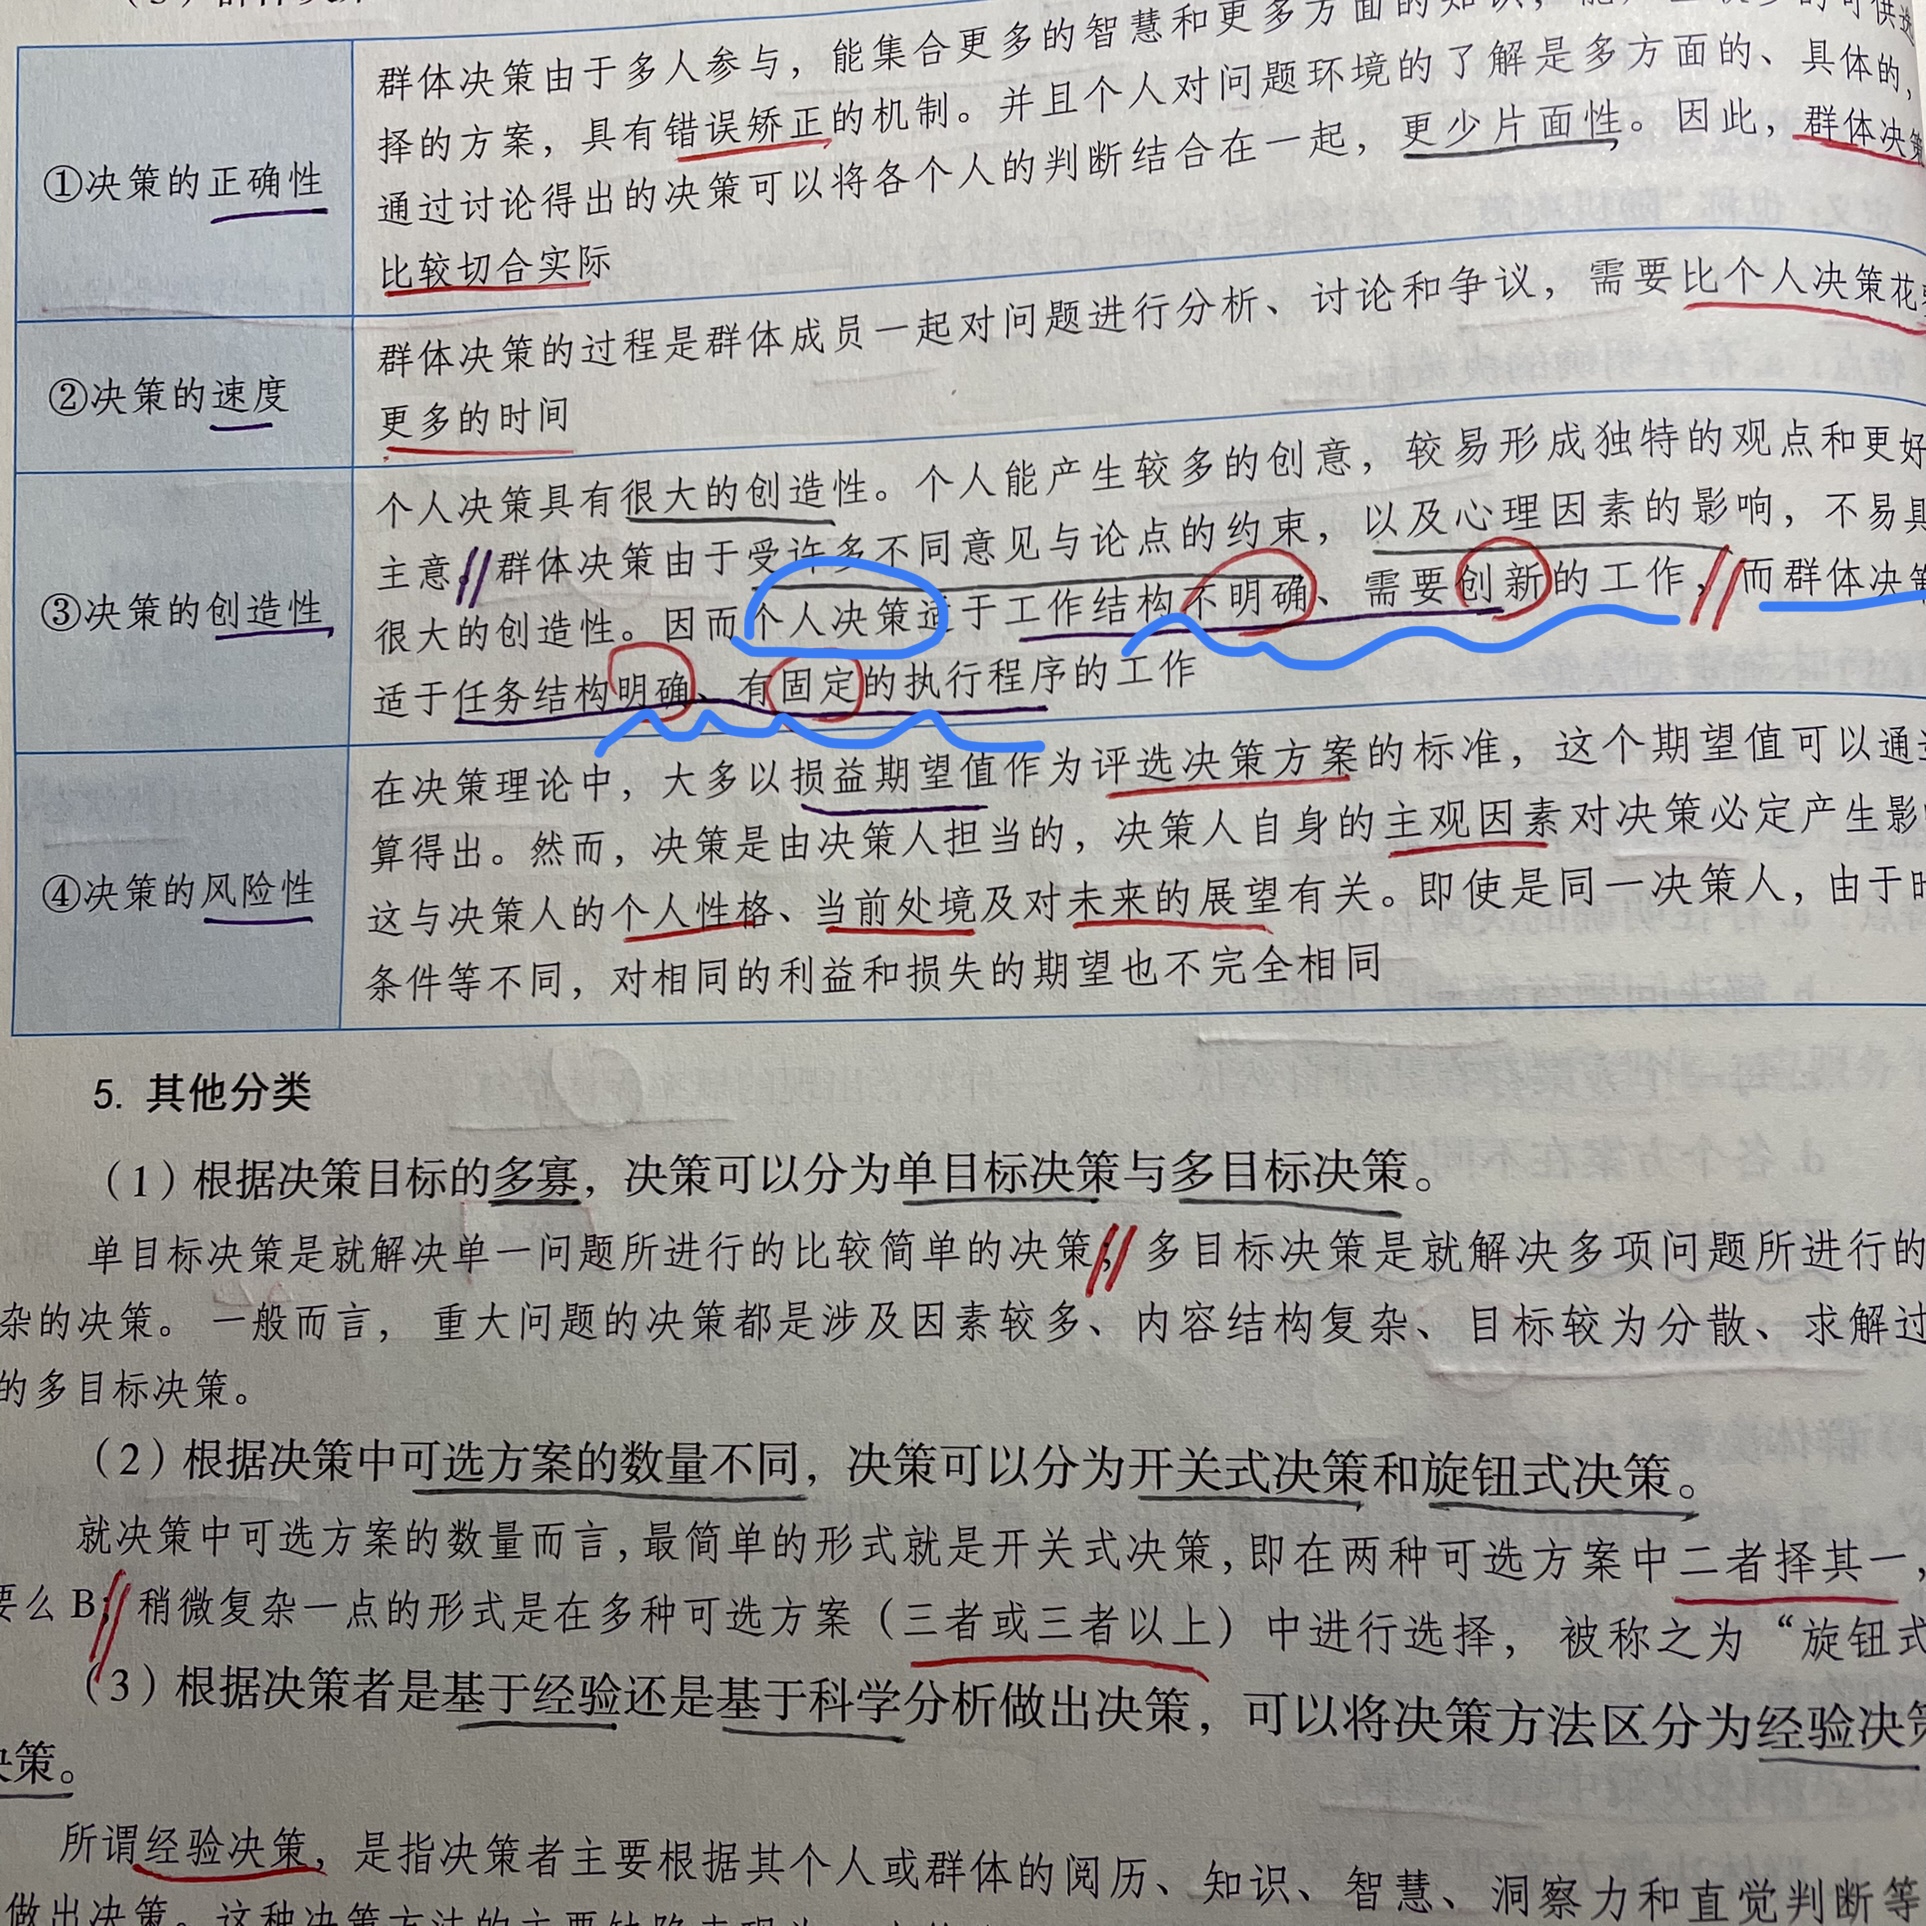 群体决策由于多人参与，能集合更多的智慧和更多方面的知识，
①决策的正确性
择的方案，具有错误矫正的机制。并且个人对问题环境的了解是多方面的、具体的，
通过讨论得出的决策可以将各个人的判断结合在一起，更少片面性。因此，群体决策
比较切合实际
②决策的速度
群体决策的过程是群体成员一起对问题进行分析、讨论和争议，需要比个人决策花
更多的时间
③决策的创造性
个人决策具有很大的创造性。个人能产生较多的创意，较易形成独特的观点和更好
主意。群体决策由于受许多不同意见与论点的约束，以及心理因素的影响，不易具
很大的创造性。因而个人决策适于工作结构不明确、需要创新的工作，而群体决策
适于任务结构明确、有固定的执行程序的工作
④决策的风险性
在决策理论中，大多以损益期望值作为评选决策方案的标准，这个期望值可以通
算得出。然而，决策是由决策人担当的，决策人自身的主观因素对决策必定产生影
这与决策人的个人性格、当前处境及对未来的展望有关。即使是同一决策人，由于时
条件等不同，对相同的利益和损失的期望也不完全相同
5. 其他分类
（1）根据决策目标的多寡，决策可以分为单目标决策与多目标决策。
单目标决策是就解决单一问题所进行的比较简单的决策；多目标决策是就解决多项问题所进行的
杂的决策。一般而言，重大问题的决策都是涉及因素较多、内容结构复杂、目标较为分散、求解过
的多目标决策。
（2）根据决策中可选方案的数量不同，决策可以分为开关式决策和旋钮式决策。
就决策中可选方案的数量而言，最简单的形式就是开关式决策，即在两种可选方案中二者择其一，
要么 B；稍微复杂一点的形式是在多种可选方案（三者或三者以上）中进行选择，被称之为“旋钮式
（3）根据决策者是基于经验还是基于科学分析做出决策，可以将决策方法区分为经验决策
决策。
所谓经验决策，是指决策者主要根据其个人或群体的阅历、知识、智慧、洞察力和直觉判断等
做出决策。这种决策方法的主要缺陷表现为